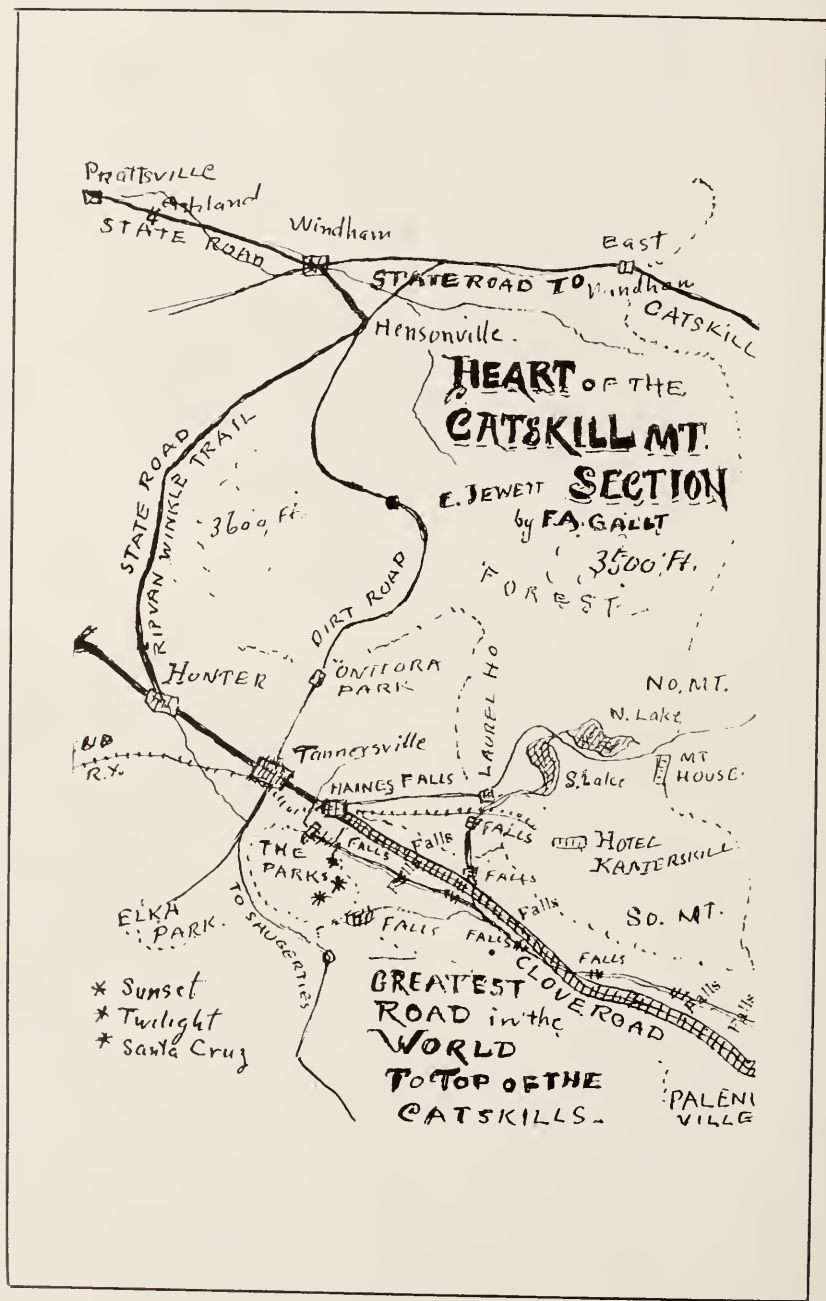 Prattsville
Ashland
STATE ROAD
Windham
East
Windham
STATE ROAD TO
CATSKILL
Hensonville.
HEART OF THE
CATSKILL MT.
SECTION
by F.A. GALLT
E. JEWETT
3500 Ft.
FOREST
STATE ROAD
RIP VAN WINKLE TRAIL
3600 Ft.
DIRT ROAD
HUNTER
ONTIORA
PARK
LAUREL HO
NO. MT.
N. Lake
S. Lake
MT
HOUSE.
R.Y.
Tannersville
HAINES FALLS
FALLS
Falls
FALLS
FALLS
HOTEL
KAATERSKILL
THE
PARKS
ELKA
PARK.
TO SHUGERTIES
FALLS
Falls
FALLS
SO. MT.
FALLS
Falls
Falls
CLOVE ROAD
* Sunset
* Twilight
* Santa Cruz
GREATEST
ROAD in the
WORLD
TO TOP OF THE
CATSKILLS.
PALENI
VILLE